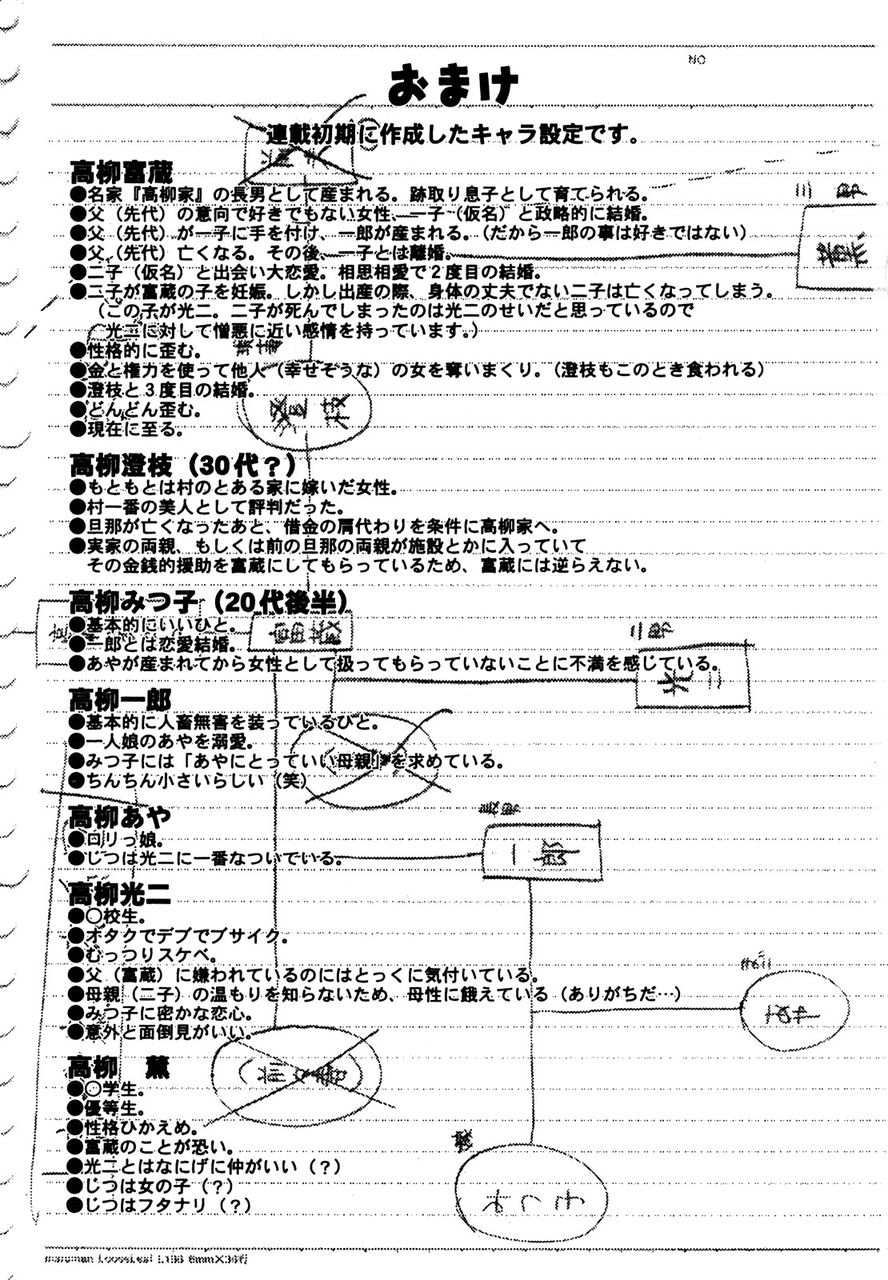 NO
おまけ
連載初期に作成したキャラ設定です。
高柳富蔵
●名家『高柳家』の長男として産まれる。跡取り息子として育てられる。
●父（先代）の意向で好きでもない女性、一子（仮名）と政略的に結婚。
●父（先代）が一子に手を付け、一郎が産まれる。（だから一郎の事は好きではない）
●父（先代）亡くなる。その後、一子とは離婚。
●二子（仮名）と出会い大恋愛。相思相愛で２度目の結婚。
●二子が富蔵の子を妊娠。しかし出産の際、身体の丈夫でない二子は亡くなってしまう。
（この子が光二。二子が死んでしまったのは光二のせいだと思っているので
光二に対して憎悪に近い感情を持っています。）
●性格的に歪む。
●金と権力を使って他人（幸せそうな）の女を奪いまくり。（澄枝もこのとき食われる）
●澄枝と３度目の結婚。
●どんどん歪む。
●現在に至る。
高柳澄枝（30代？）
●もともとは村のとある家に嫁いだ女性。
●村一番の美人として評判だった。
●旦那が亡くなったあと、借金の肩代わりを条件に高柳家へ。
●実家の両親、もしくは前の旦那の両親が施設とかに入っていて
その金銭的援助を富蔵にしてもらっているため、富蔵には逆らえない。
高柳みつ子（20代後半）
●基本的にいいひと。
●一郎とは恋愛結婚。
●あやが産まれてから女性として扱ってもらっていないことに不満を感じている。
高柳一郎
●基本的に人畜無害を装っているひと。
●一人娘のあやを溺愛。
●みつ子には「あやにとっていい母親」を求めている。
●ちんちん小さいらしい（笑）
高柳あや
●ロリっ娘。
●じつは光二に一番なついでいる。
高柳光二
●○校生。
●オタクでデブでブサイク。
●むっつりスケベ。
●父（富蔵）に嫌われているのにはとっくに気付いている。
●母親（二子）の温もりを知らないため、母性に餓えている（ありがちだ…）
●みつ子に密かな恋心。
●意外と面倒見がいい。
高柳　薫
●○学生。
●優等生。
●性格ひかえめ。
●富蔵のことが恐い。
●光二とはなにげに仲がいい（？）
●じつは女の子（？）
●じつはフタナリ（？）
三郎
薫
澄枝
富蔵
二郎
光二
長男
一郎
あや
みつ子
maruman LooseLeaf